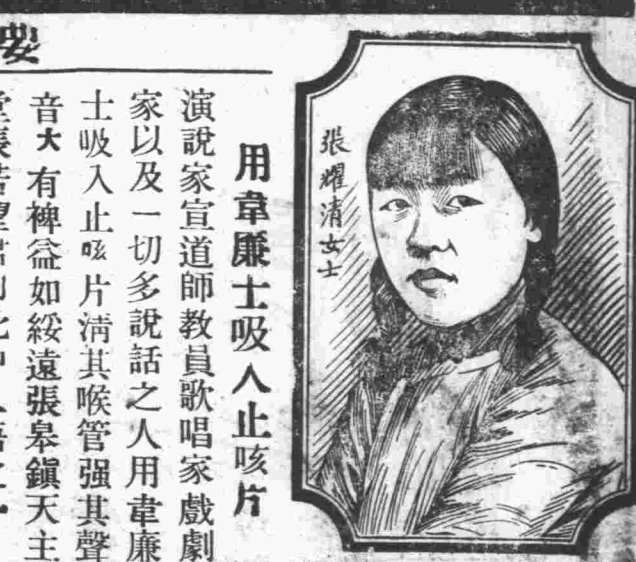 張耀清女士
用韋廉士吸入止咳片
演說家宣道師教員歌唱家戲劇
家以及一切多說話之人用韋廉
士吸入止咳片淸其喉管强其聲
音大有裨益如綏遠張皋鎭天主